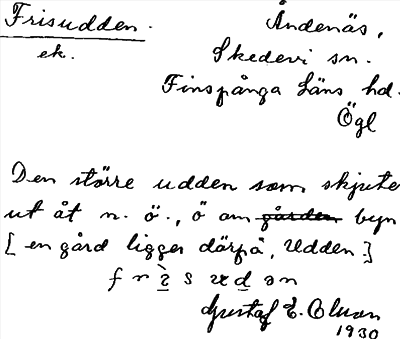 Frisudden. Åndenäs,
ek. Skedevi sn.
Finspånga Läns hd.
Ögl
Den större udden som skjuter
ut åt n. ö., ö om gården byn
[en gård ligger därpå, Udden]
Gustaf E. Olsson
1930